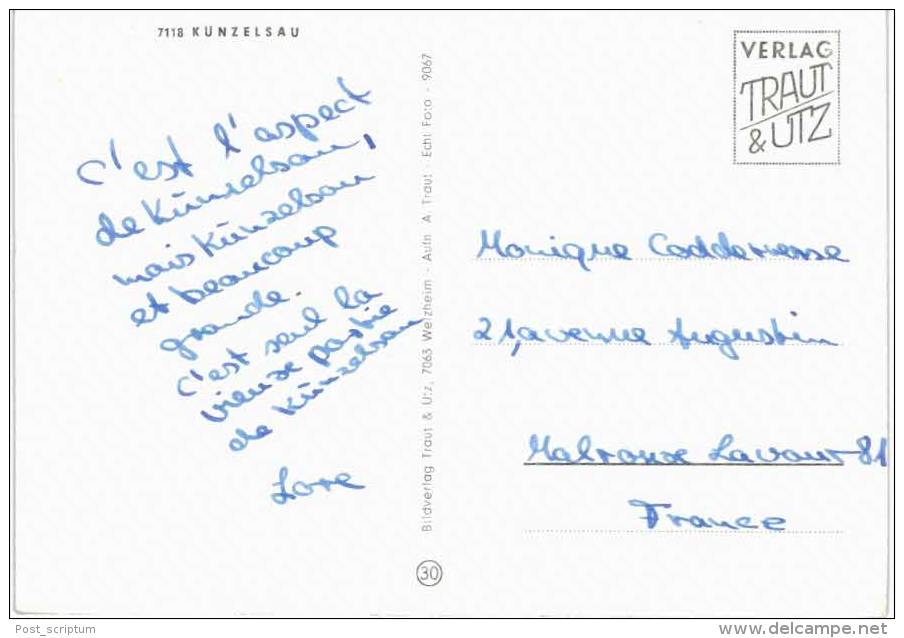 7118 KÜNZELSAU
c'est l'aspect
de Künzelsau,
mais Künzelsau
et beaucoup
grande.
c'est seul la
vieuse partie
de Künzelsau
Lore
Bildverlag Traut & Utz, 7063 Welzheim - Aufn. A. Traut - Echt Foto - 9067
30
VERLAG
TRAUT
& UTZ
Monique
21, avenue Augustin
Lavaur 81
France
Post_scriptum
www.delcampe.net